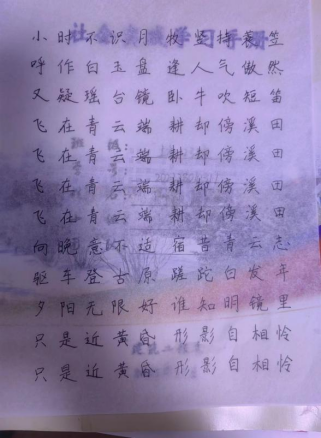 社会实践学习手册
小时不识月 牧竖持蓑笠
呼作白玉盘 逢人气傲然
又疑瑶台镜 卧牛吹短笛
飞在青云端 耕却傍溪田
飞在青云端 耕却傍溪田
飞在青云端 耕却傍溪田
飞在青云端 耕却傍溪田
向晚意不适 宿昔青云志
驱车登古原 蹉跎白发年
夕阳无限好 谁知明镜里
只是近黄昏 形影自相怜
只是近黄昏 形影自相怜